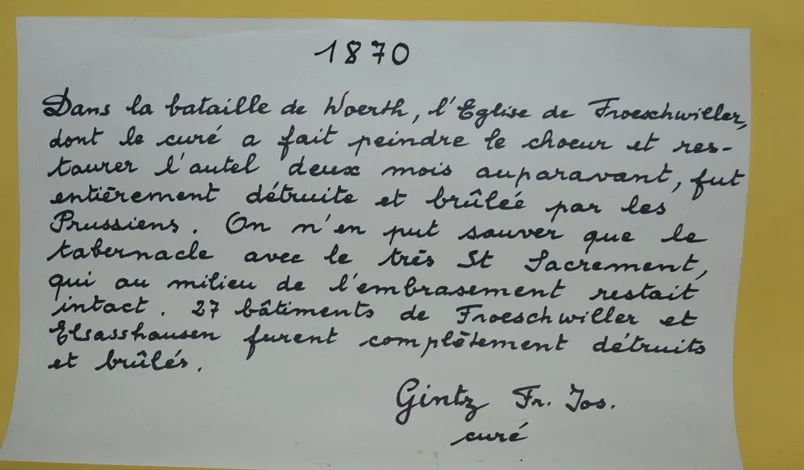 1870
Dans la bataille de Woerth, l'Eglise de Froeschwiller,
dont le curé a fait peindre le choeur et res-
taurer l'autel deux mois auparavant, fut
entièrement détruite et brûlée par les
Prussiens. On n'en put sauver que le
tabernacle avec le très St Sacrement,
qui au milieu de l'embrasement restait
intact. 27 bâtiments de Froeschwiller et
Elsasshausen furent complètement détruits
et brûlés.
Gintz Fr. Jos.
curé